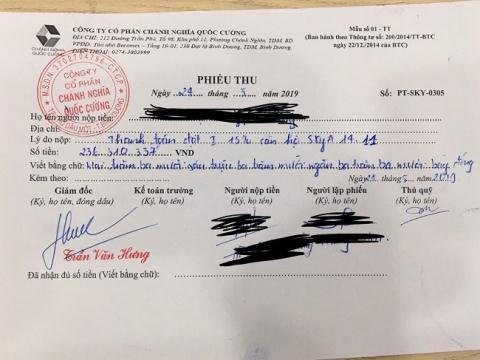 CÔNG TY CỔ PHẦN CHÁNH NGHĨA QUỐC CƯỜNG
ĐỊA CHỈ: 212 Đường Trần Phú, Tổ 98, Khu phố 11, Phường Chánh Nghĩa, TDM, BD.
VPĐD: Tòa nhà Becamex – Tầng 10-01, 230 Đại lộ Bình Dương, TDM, Bình Dương
ĐIỆN THOẠI: 0274-3803999
CHÁNH NGHĨA
QUỐC CƯỜNG
Mẫu số 01 - TT
(Ban hành theo Thông tư số: 200/2014/TT-BTC
ngày 22/12/2014 của BTC)
M.S.D.N: 3702704756-C.T.C.P
CÔNG TY
CỔ PHẦN
CHÁNH NGHĨA
QUỐC CƯỜNG
PHIẾU THU
Ngày 21 tháng 5 năm 2019
Số: PT-SKY-0305
Họ tên người nộp tiền:
Địa chỉ:
Lý do nộp: Thanh toán đợt I 15% căn hộ Sky A 14.11
Số tiền: 236.310.337 VND
Viết bằng chữ: Hai trăm ba mươi sáu triệu ba trăm mười ngàn ba trăm ba mươi bảy đồng
Kèm theo: Ngày 21 tháng 5 năm 2019
Giám đốc Kế toán trưởng Người nộp tiền Người lập phiếu Thủ quỹ
(Ký, họ tên, đóng dấu) (Ký, họ tên) (Ký, họ tên) (Ký, họ tên) (Ký, họ tên)
Trần Văn Hưng
Đã nhận đủ số tiền (Viết bằng chữ):